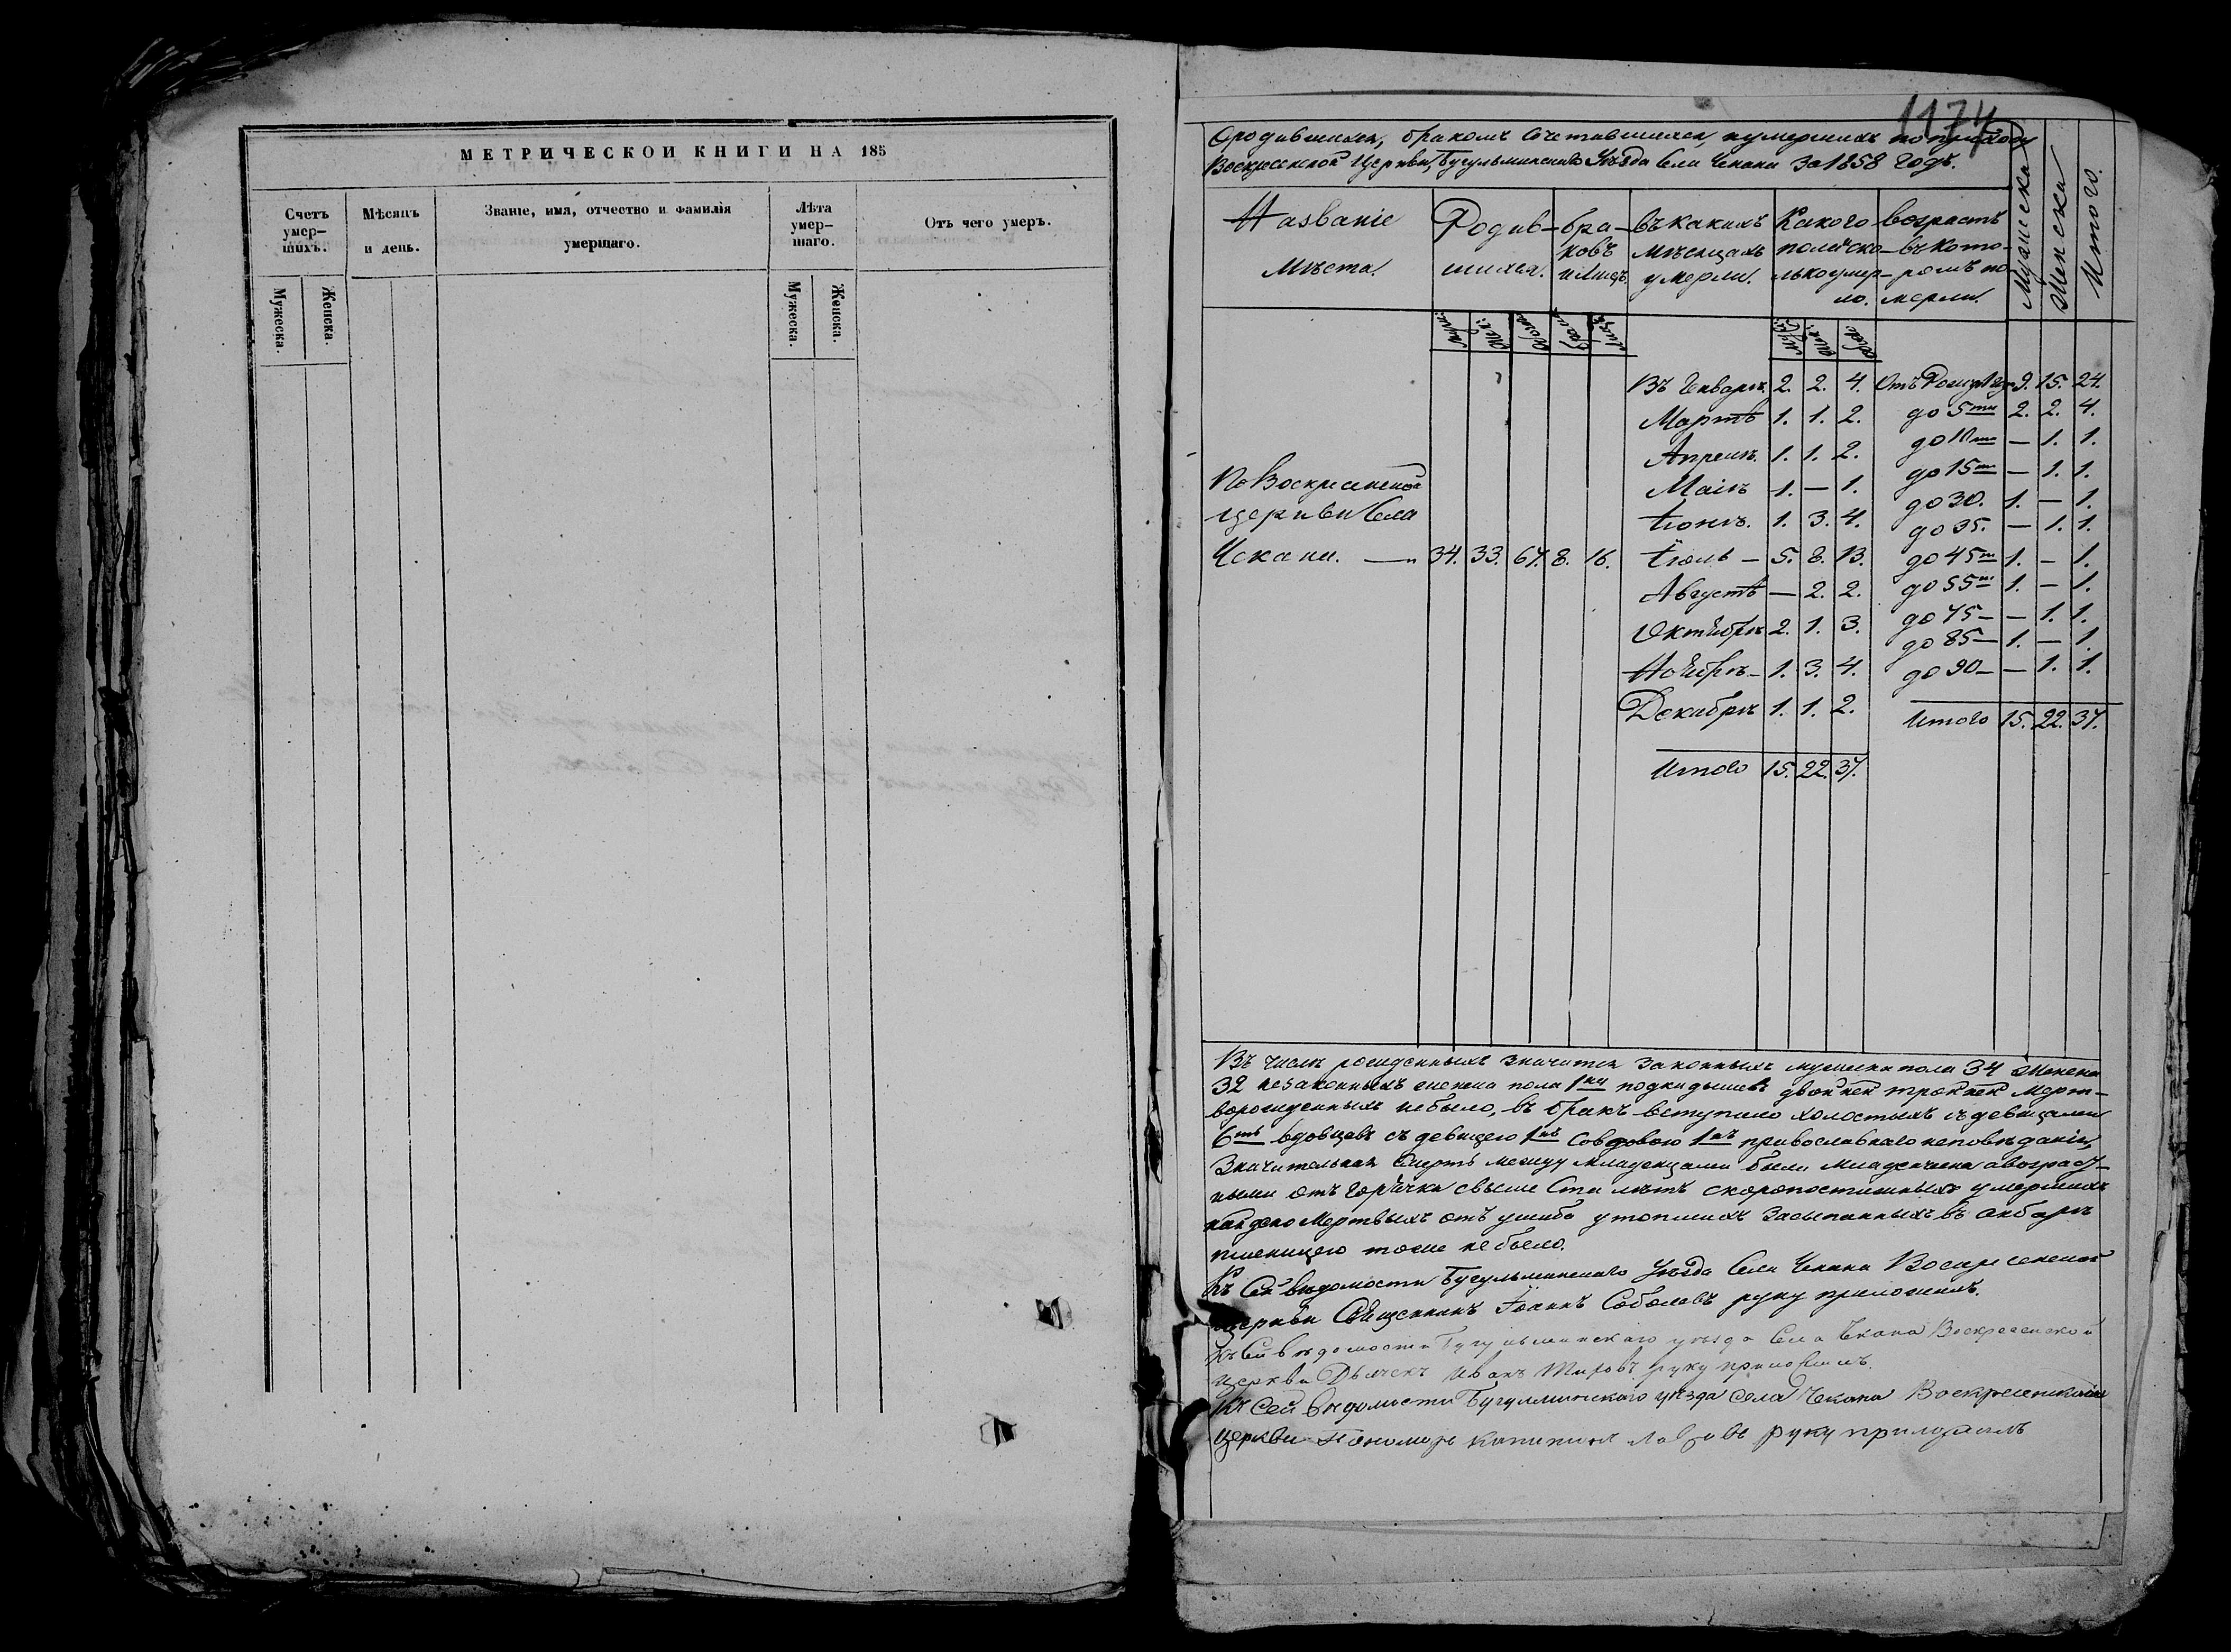 МЕТРИЧЕСКОЙ КНИГИ НА 185
Счетъ умер-шихъ.
Мѣсяцъ и день.
Званіе, имя, отчество и фамилія умершаго.
Лѣта умер-шаго.
Отъ чего умеръ.
Мужеска.
Женска.
Мужеска.
Женска.
1174
О родившихся, бракомъ сочетавшихся, и умершихъ по приходу
Воскресенской Церкви, Бугульминскаго Уѣзда Села Чекана За 1858 годъ.
Названіе Мѣста.
Родив-шихся.
Бра-ковъ и лицъ.
Въ какихъ Мѣсяцахъ умерли.
Какого пола и ско-лько умер-ло.
Возрастъ въ кото-ромъ по-мерли.
Мужеска
Женска
Итого.
По Воскресенской
церкви Села
Чекана. — 34. 33. 67. 8. 16.
Въ Январѣ 2. 2. 4.
Мартѣ 1. 1. 2.
Апрелѣ. 1. 1. 2.
Маіѣ 1. — 1.
Іюнѣ. 1. 3. 4.
Іюль — 5. 8. 13.
Августѣ — 2. 2.
Октябрѣ 2. 1. 3.
Ноябрѣ — 1. 3. 4.
Декабрѣ 1. 1. 2.
Итого 15. 22. 37.
9. 15. 24.
до 5ти 2. 2. 4.
до 10ти — 1. 1.
до 15ти — 1. 1.
до 30. 1. — 1.
до 35. — 1. 1.
до 45ти 1. — 1.
до 55ти 1. — 1.
до 75 — — 1. 1.
до 85 — 1. — 1.
до 90 — — 1. 1.
Итого 15. 22. 37.
Въ числѣ рожденныхъ значится законныхъ мужеска пола 34 Женска
32 незаконныхъ женска пола 1 подкидышевъ двойней тройней Мерт-
ворожденныхъ небыло, въ бракъ вступило холостыхъ съ девицами
6ть вдовцевъ съ девицею 1нъ совдовою 1нъ православнаго исповѣданія,
Значительная Смерть между Младенцами были Младенческа а возраст-
ными отъ горячка свыше Ста лѣтъ скоропостижныхъ умершихъ
найдено Мертвыхъ отъ ушиба утоплихъ Засыпанныхъ въ анбарѣ
пшеницею тоже небыло.
Къ Сей вѣдомости Бугульминскаго Уѣзда Села Чекана Воскресенской
Церкви Священникъ Іоаннъ Соболевъ руку приложилъ.
Къ Сей вѣдомости Бугульминскаго уѣзда Села Чекана Воскресенской
церкви Дьячекъ Иванъ руку приложилъ.
Къ Сей вѣдомости Бугулминскаго уѣзда села Чекана Воскресенской
Церкви Пономарь руку приложилъ